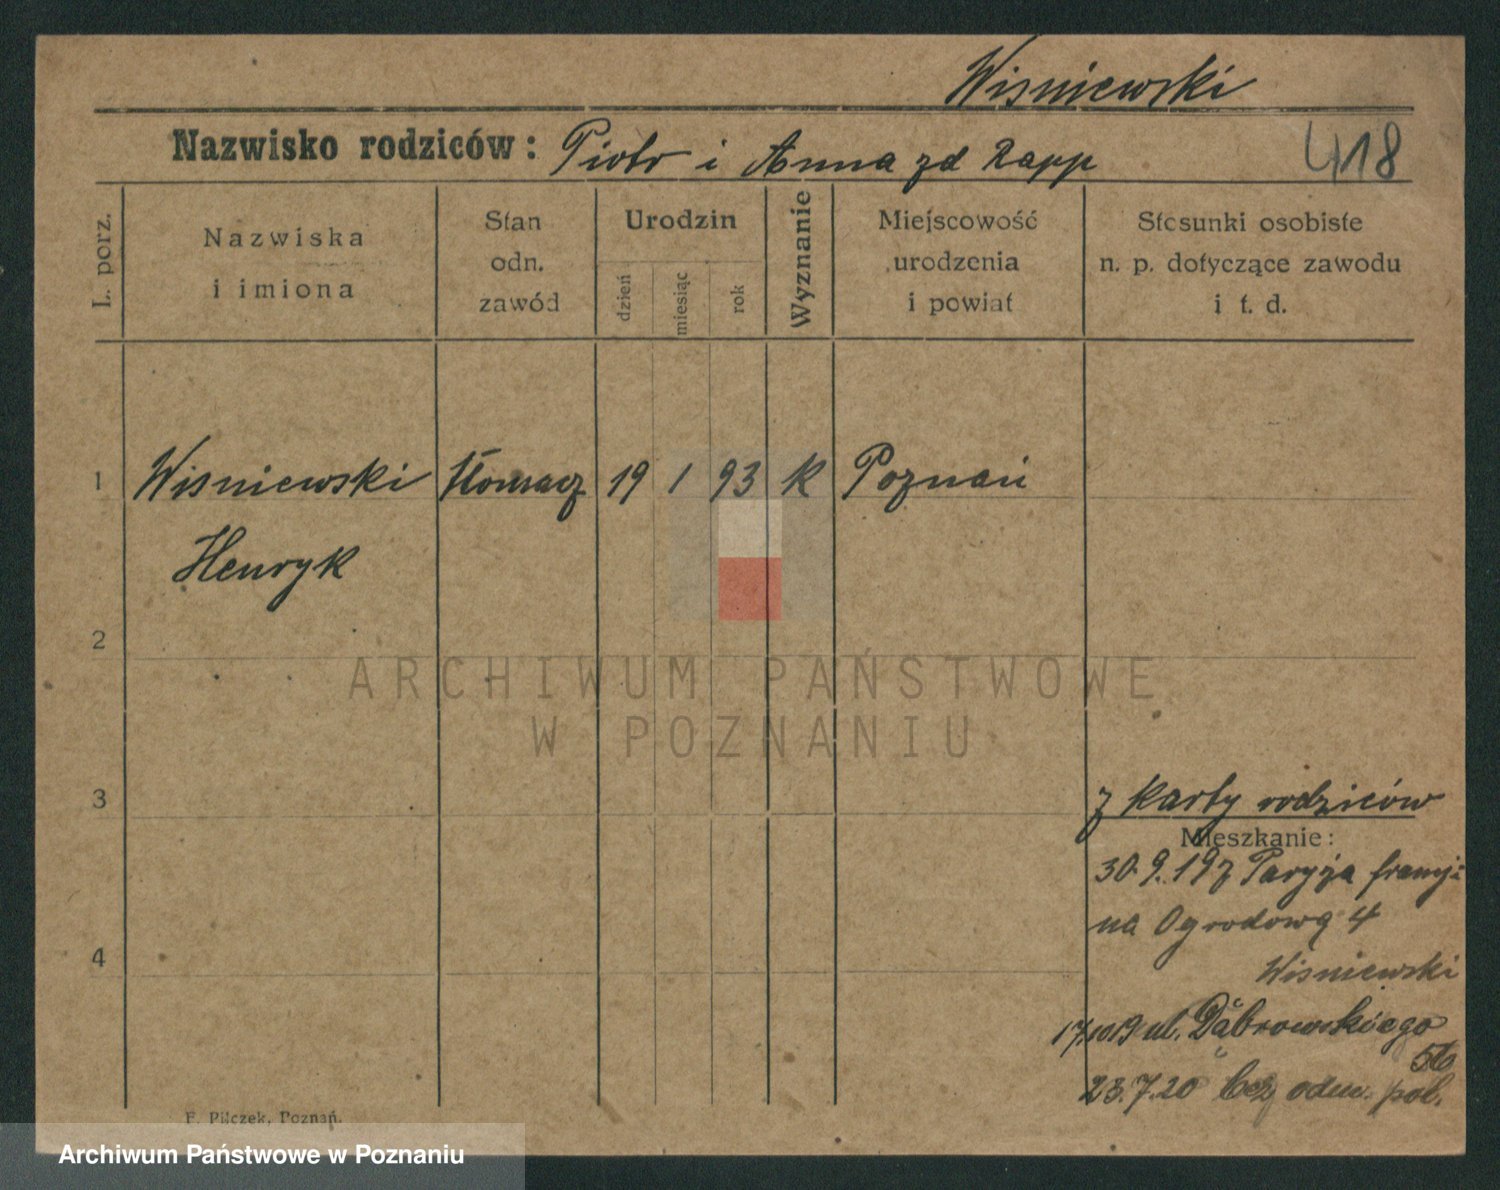 Wisniewski
Nazwisko rodziców: Piotr i Anna zd Rapp
418
L. porz.
Nazwiska
i imiona
Stan
odn.
zawód
Urodzin
dzień
miesiąc
rok
Wyznanie
Miejscowość
urodzenia
i powiat
Stosunki osobiste
n. p. dotyczące zawodu
i t. d.
1 Wisniewski tłomacz 19 1 93 k Poznań
Henryk
2
ARCHIWUM PAŃSTWOWE
W POZNANIU
3
z karty rodziców
Mieszkanie:
30.9.19 z Paryża
na Ogrodową 4
4
Wisniewski
17.10.19 ul. Dąbrowskiego
56
23.7.20 bez odm. pol.
F. Pilczek, Poznań.
Archiwum Państwowe w Poznaniu